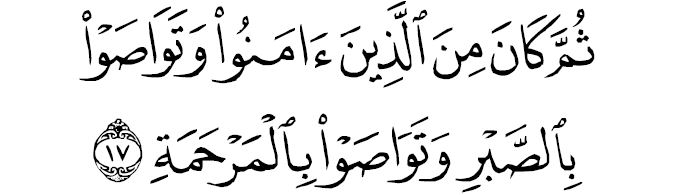 ثُمَّ كَانَ مِنَ ٱلَّذِينَ ءَامَنُوا۟ وَتَوَاصَوْا۟
بِٱلصَّبْرِ وَتَوَاصَوْا۟ بِٱلْمَرْحَمَةِ ١٧